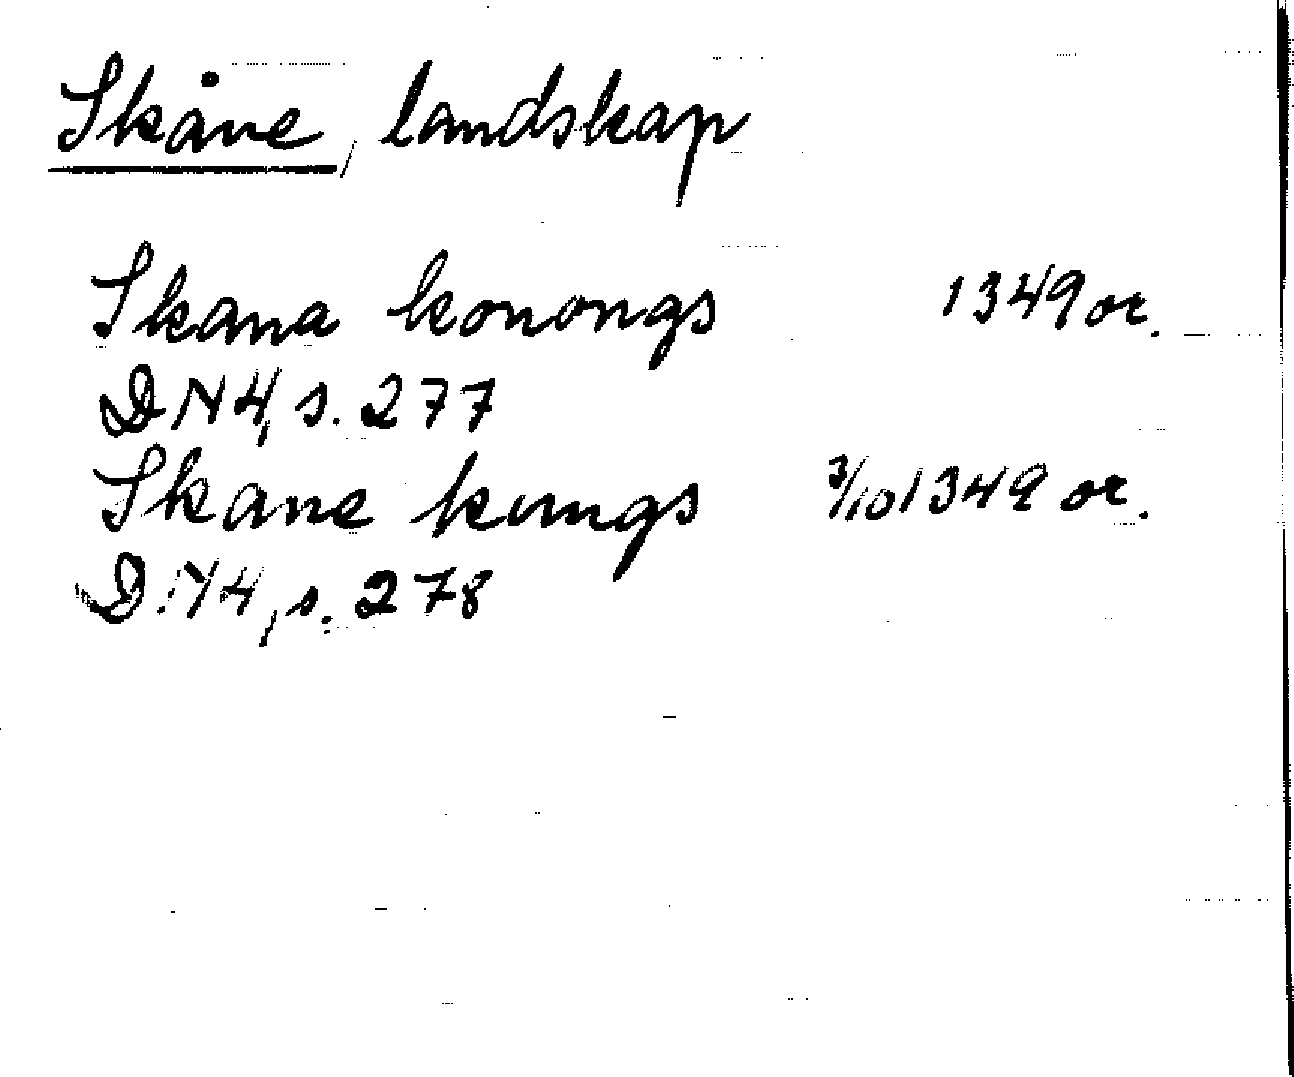 Skåne, landskap
Skana konongs 1349 or.
DN 4, s. 277
Skane kungs 3/10 1349 or.
DN 4, s. 278